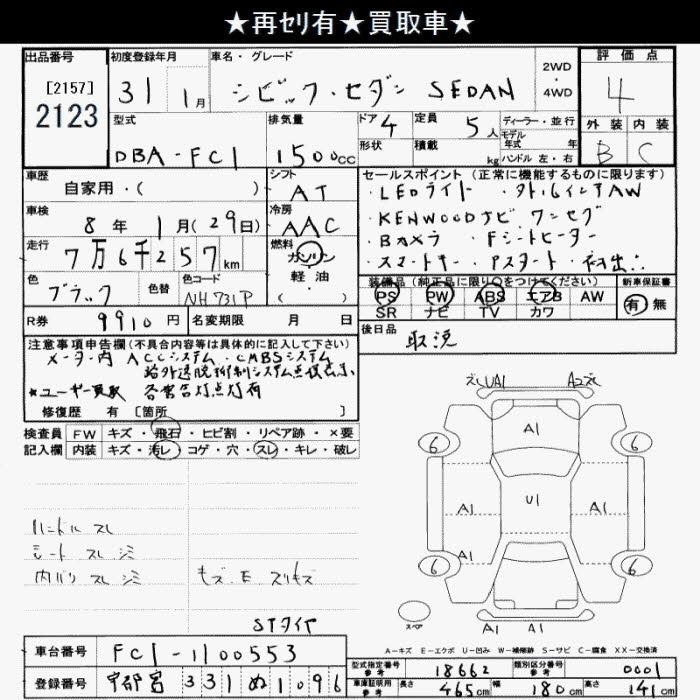 ★再セリ有★買取車★
出品番号
[2157]
2123
初度登録年月
31 1月
車名・グレード
シビック・セダン SEDAN
2WD
・
4WD
評価点
4
外装 内装
B C
型式
DBA-FC1
排気量
1500cc
ドア 4
形状
定員 5人
積載 kg
ディーラー・並行
モデル
年式 年
ハンドル 左・右
車歴
自家用・( )
シフト
AT
車検
8年1月(29日)
冷房
AAC
走行
7万6千257km
燃料
ガソリン
軽・油
( ・ )
色
ブラック
色替
色コード
NH731P
R券 9910円
名変期限 月 日
セールスポイント(正常に機能するものに限ります)
・LEDライト ・外・ルインアAW
・KENWOODナビ ワンセグ
・Bカメラ Fシートヒーター
・スマートキー Pスタート
装備品(純正品に限り○をつけてください)
PS PW ABS エアB AW
SR ナビ TV カワ
新車保証書
有 無
後日品
取説
注意事項申告欄(不具合内容等は具体的に記入して下さい)
メーター内 ACCシステム・CMBSシステム
路外逸脱抑制システム点検表示
★ユーザー買取 各警告灯点灯有
修復歴 有 [箇所 ]
検査員
記入欄
FW キズ・飛石・ヒビ割・リペア跡・×要
内装 キズ・汚レ・コゲ・穴・スレ・キレ・破レ
ハンドル スレ
シート スレ シミ
内バリ スレ シミ
キズ・E スリキズ
STタイヤ
ズレUA1 A2ズレ
A1
6 6
U1
A1 A1
A1
6 6
スペア
A1 A1
A－キズ E－エクボ U－凹み W－補修跡 S－サビ C－腐食 XX－交換済
車台番号 FC1-1100553
登録番号 宇都宮 331 ぬ 1096
型式指定番号
参考
18662
類別区分番号
参考
0001
車庫証明用
参考
長さ 465cm 幅 180cm 高さ 141cm